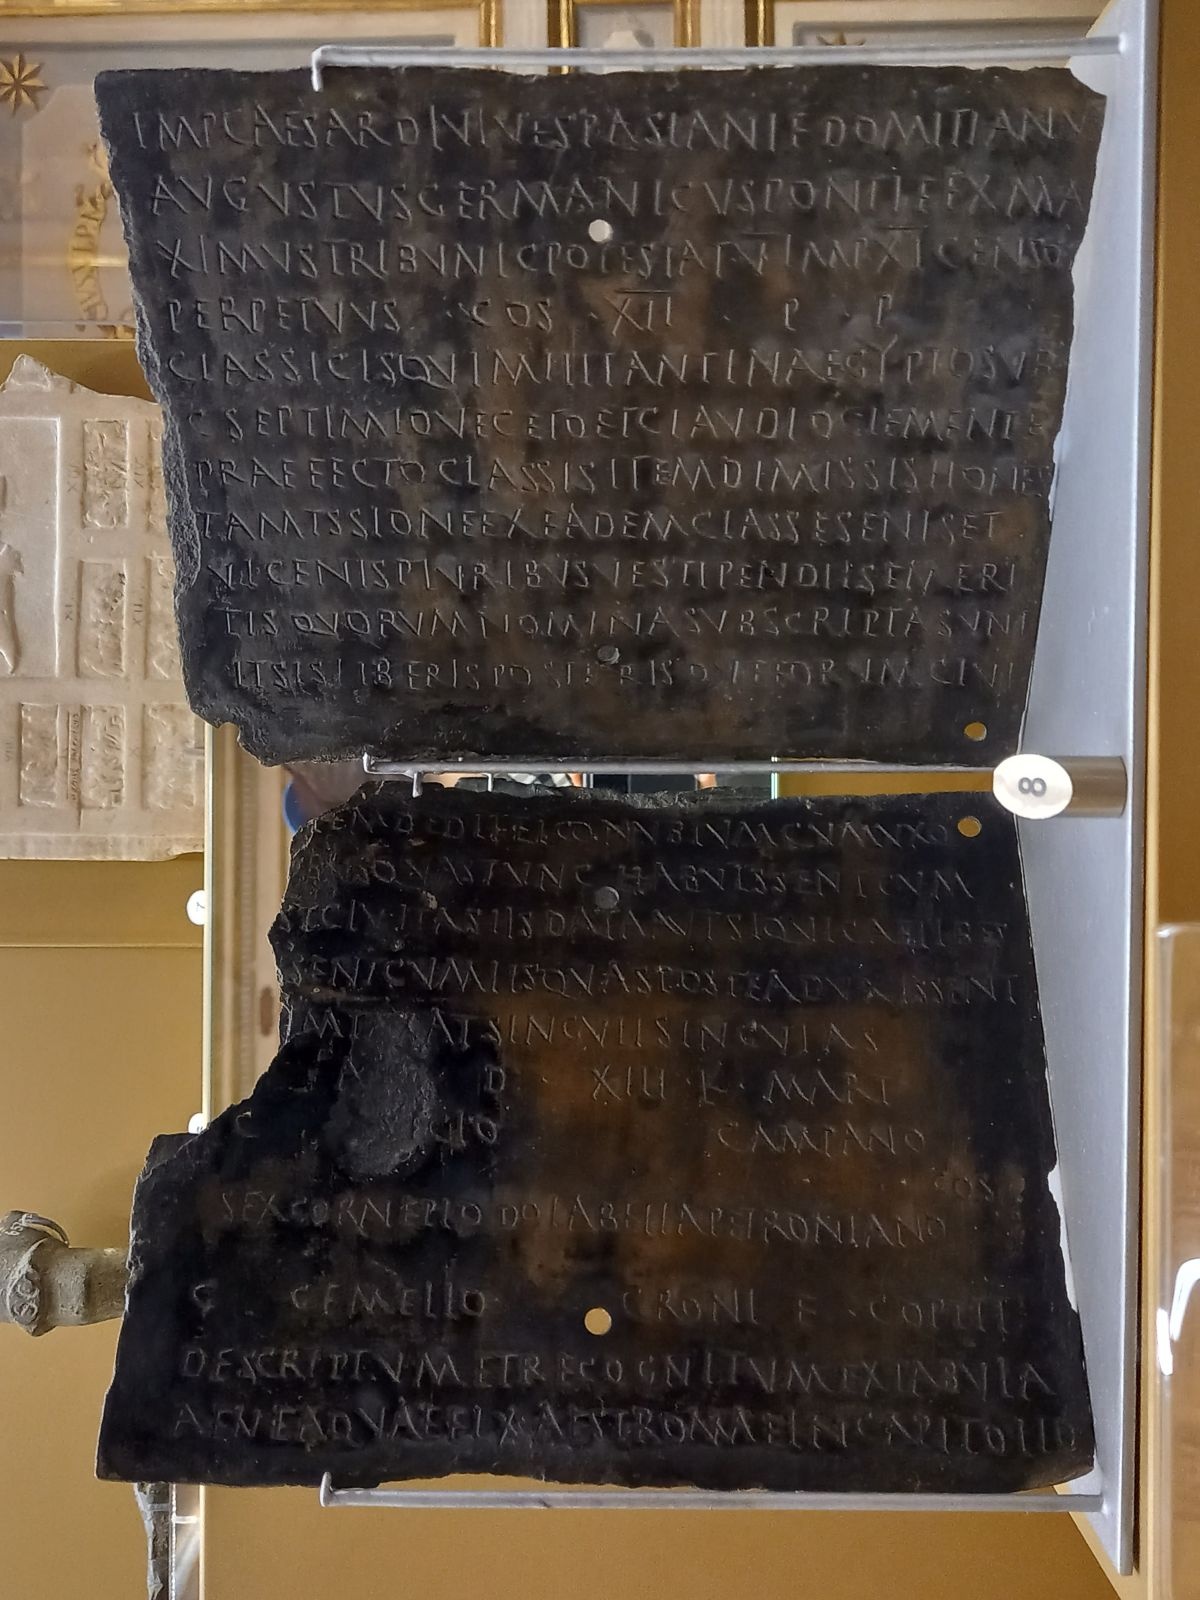 IMP CAESAR DIVI VESPASIANI F DOMITIANV
AVGVSTVS GERMANICVS PONTIFEX MA
XIMVS TRIBVNIC POTESTAT VI IMP XI CENSO
PERPETVVS · COS · XII · P · P
CLASSICIS QVI MILITANT IN AEGYPTO SVB
C SEPTIMIO VEGETO ET CLAVDIO CLEMENTE
PRAEFECTO CLASSIS ITEM DIMISSIS HONES
TA MISSIONE EX EADEM CLASSE SENIS ET
VICENIS PLVRIBVSVE STIPENDIIS EMERI
TIS QVORVM NOMINA SVBSCRIPTA SVNT
IPSIS LIBERIS POSTERISQVE EORVM CIVI
DEDIT ET CONVBIVM CVM VXO
QVAS TVNC HABVISSENT CVM
EST CIVITAS IIS DATA AVT SI QVI CAELIBES
ESSENT CVM IIS QVAS POSTEA DVXISSENT
SINGVLI SINGVLAS
A · D · XIII · K · MART
CAMPANO
COS
SEX CORNELIO DOLABELLA PETRONIANO
C · GEMELLO CRONI F · COPTIT
DESCRIPTVM ET RECOGNITVM EX TABVLA
AENEA QVAE FIXA EST ROMAE IN CAPITOLIO